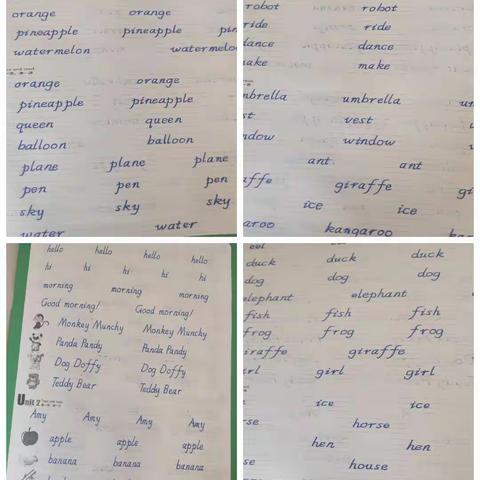 orange orange
pineapple pineapple pin
watermelon watermelo
orange orange
pineapple pineapple
queen queen
balloon balloon
plane plane plane
pen pen pen
sky sky sky
water water
robot robot
ride ride
dance dance
make make
umbrella umbrella um
vest
window
ant ant
giraffe gi
ice ice
kangaroo
hello hello hello hello
hi hi hi hi
morning morning morning
Good morning! Good morning!
Monkey Munchy Monkey Munchy
Panda Pandy Panda Pandy
Dog Doffy Dog Doffy
Teddy Bear Teddy Bear
Unit 2
Amy Amy Amy Amy
apple apple apple
banana banana banana
eel
duck duck duck
dog dog dog
elephant elephant
fish fish fish
frog frog frog
iraffe giraffe
rl girl girl
ice ice
se horse
hen hen
se house